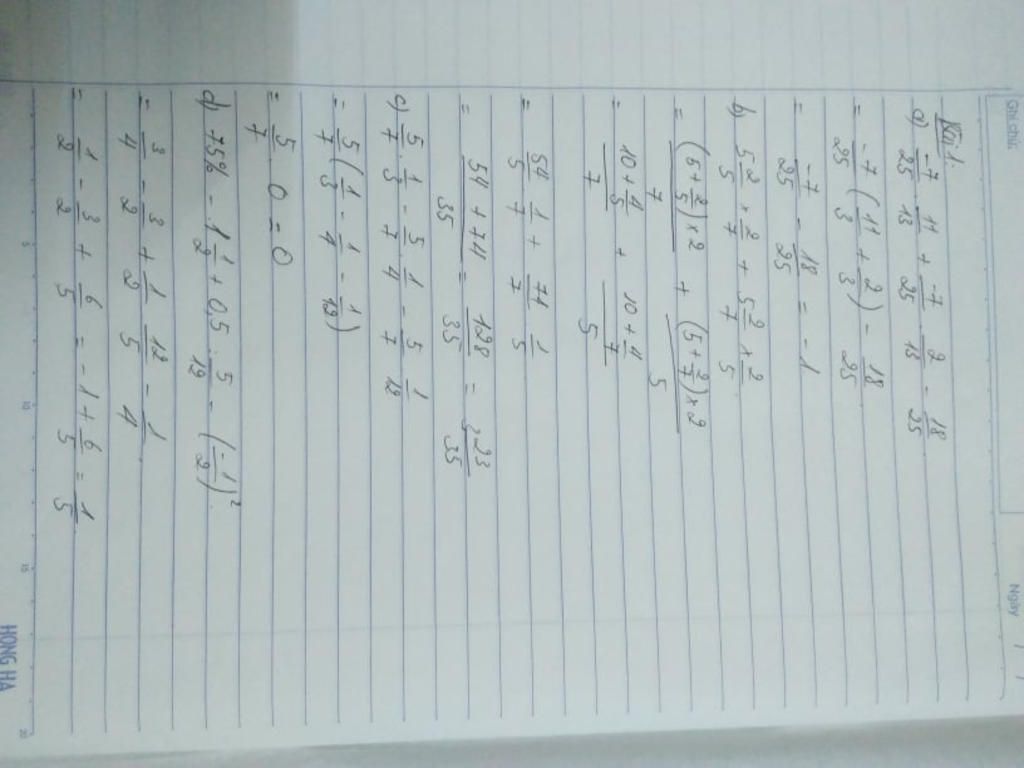 Ghi chú: Ngày / /
Bài 1.
a) -7/25 . 11/13 + -7/25 . 2/13 - 18/35
= -7/25 (11/3 + 2/3) - 18/25
= -7/25 - 18/25 = -1
b) 5 2/5 × 2/7 + 5 2/7 × 2/5
= (5+2/5)×2/7 + (5+2/7)×2/5
= (10+4/5)/7 + (10+4/7)/5
= 54/5 . 1/7 + 74/7 . 1/5
= (54+74)/35 = 128/35 = 3 23/35
c) 5/7 . 1/3 - 5/7 . 1/4 - 5/7 . 1/12
= 5/7 (1/3 - 1/4 - 1/12)
= 5/7 . 0 = 0
d) 75% - 1 1/2 + 0,5 : 5/12 - (-1/2)²
= 3/4 - 3/2 + 1/2 . 12/5 - 1/4
= 1/2 - 3/2 + 6/5 = -1 + 6/5 = 1/5
5 10 15 20
HONG HA